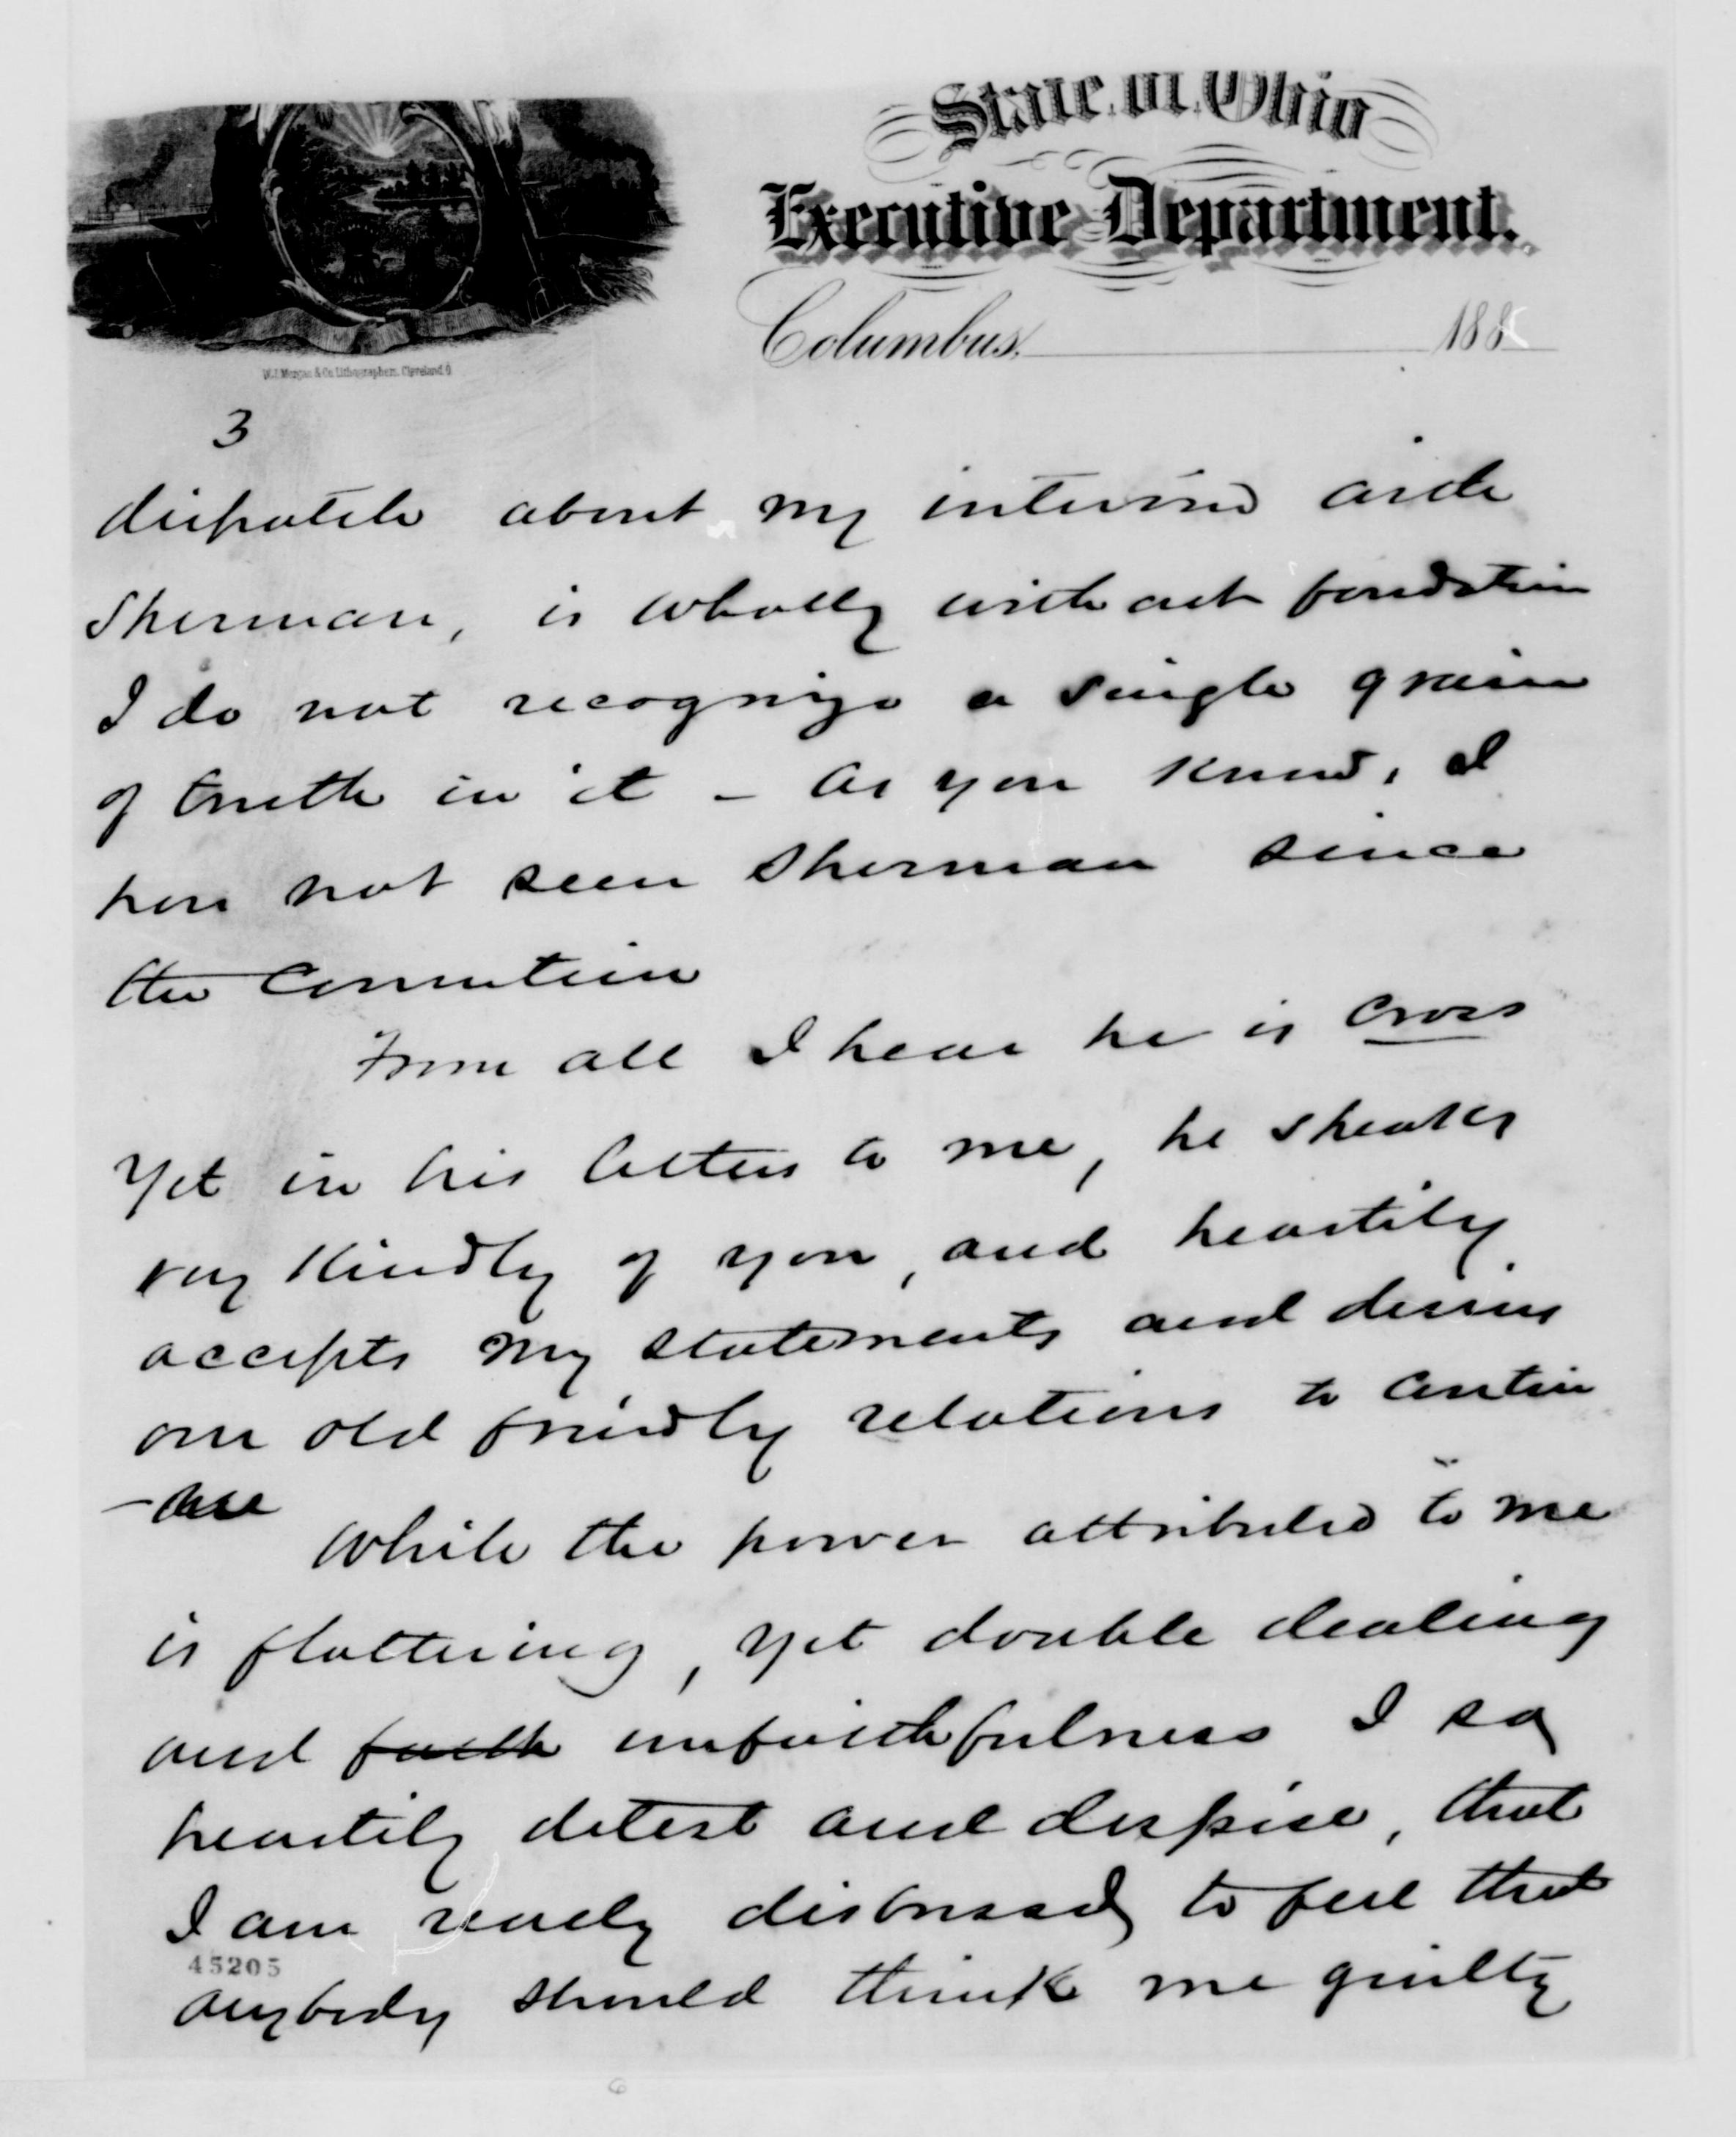 State of Ohio
Executive Department.
Columbus, 188
W.J. Morgan & Co. Lithographers. Cleveland. O
3
dispatch about my interview with
Sherman, is wholly without foundation
I do not recognize a single grain
of truth in it - As you know, I
have not seen Sherman since
the Convention
From all I hear he is cross
Yet in his letters to me, he speaks
very kindly of you, and heartily
accepts my statements and desires
our old friendly relations to contin
-ue
While the power attributed to me
is flattering, yet double dealing
and faith unfaithfulness I so
heartily detest and despise, that
I am really distressed to feel that
45205
anybody should think me guilty
6